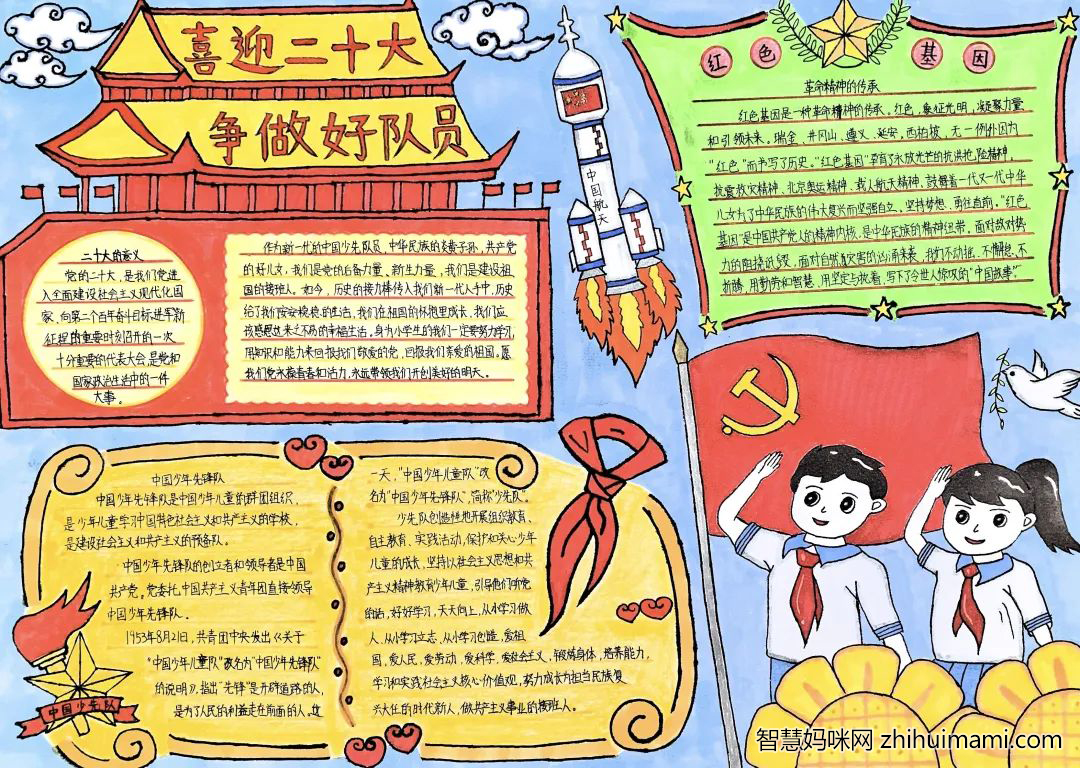 喜迎二十大
争做好队员
二十大的意义
党的二十大,是我们党进
入全面建设社会主义现代化国
家、向第二个百年奋斗目标进军新
征程的重要时刻召开的一次
十分重要的代表大会,是党和
国家政治生活中的一件
大事。
作为新一代的中国少先队员,中华民族的炎黄子孙、共产党
的好儿女,我们是党的后备力量、新生力量,我们是建设祖
国的接班人。如今,历史的接力棒传入我们新一代人手中,历史
给了我们安安稳稳的生活,我们在祖国的怀抱里成长,我们应
该感恩这来之不易的幸福生活。身为小学生的我们一定要努力学习,
用知识和能力来回报我们敬爱的党,回报我们亲爱的祖国。愿
我们党永葆青春和活力,永远带领我们开创美好的明天。
中国航天
红色基因
革命精神的传承
红色基因是一种革命精神的传承。红色,象征光明,凝聚力量
和引领未来。瑞金、井冈山、遵义、延安、西柏坡,无一例外因为
“红色”而书写了历史。“红色基因”孕育了永放光芒的抗洪抢险精神、
抗震救灾精神、北京奥运精神、载人航天精神,鼓舞着一代又一代中华
儿女为了中华民族的伟大复兴而坚强自立、坚持梦想、勇往直前。“红色
基因”是中国共产党人的精神内核,是中华民族的精神纽带。面对敌对势
力的阻挠诋毁,面对自然灾害的汹涌来袭,我们不动摇、不懈怠、不
折腾,用勤劳和智慧,用坚定与执着,写下了令世人惊叹的“中国故事”
中国少年先锋队
中国少年先锋队是中国少年儿童的群团组织,
是少年儿童学习中国特色社会主义和共产主义的学校,
是建设社会主义和共产主义的预备队。
中国少年先锋队的创立者和领导者是中国
共产党。党委托中国共产主义青年团直接领导
中国少年先锋队。
1953年8月21日,共青团中央发出《关于
“中国少年儿童队”改名为“中国少年先锋队”
的说明》,指出“先锋”是开辟道路的人,
是为了人民的利益走在前面的人。这
一天,“中国少年儿童队”改
名为“中国少年先锋队”,简称“少先队”。
少先队创造性地开展组织教育、
自主教育、实践活动,保护和关心少年
儿童的成长,坚持以社会主义思想和共
产主义精神教育少年儿童,引导他们听党
的话,好好学习,天天向上,从小学习做
人、从小学习立志、从小学习创造,爱祖
国,爱人民,爱劳动,爱科学,爱社会主义,锻炼身体,培养能力,
学习和实践社会主义核心价值观,努力成长为担当民族复
兴大任的时代新人,做共产主义事业的接班人。
中国少先队
智慧妈咪网 zhihuimami.com